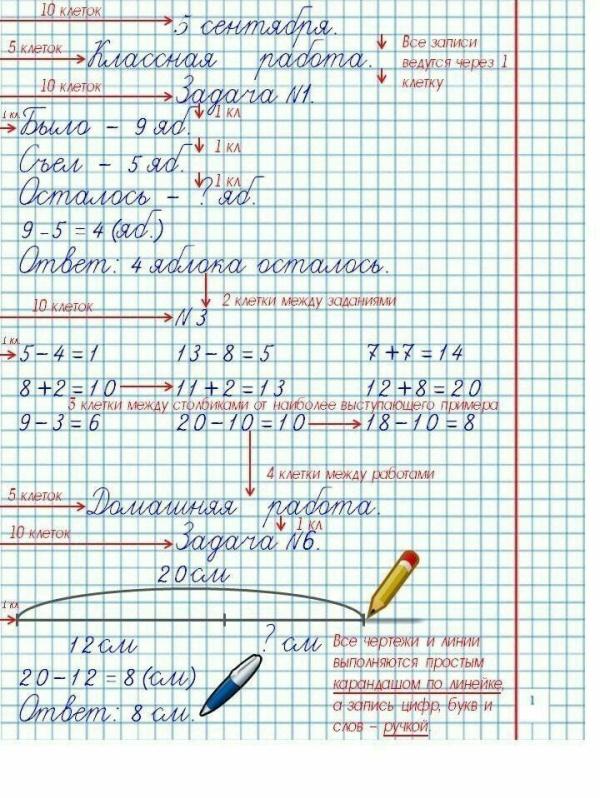 10 клеток 5 сентября.
5 клеток Классная работа. Все записи
ведутся через 1
клетку
10 клеток Задача N1.
1 кл Было – 9 яб. 1 кл
Съел – 5 яб. 1 кл
Осталось – ? яб. 1 кл
9 – 5 = 4 (яб.)
Ответ: 4 яблока осталось.
2 клетки между заданиями
10 клеток N 3
1 кл 5 – 4 = 1 13 – 8 = 5 7 + 7 = 14
8 + 2 = 10 11 + 2 = 13 12 + 8 = 20
3 клетки между столбиками от наиболее выступающего примера
9 – 3 = 6 20 – 10 = 10 18 – 10 = 8
4 клетки между работами
5 клеток Домашняя работа.
1 кл
10 клеток Задача N6.
20 см
1 кл
12 см ? см
Все чертежи и линии
выполняются простым
карандашом по линейке,
а запись цифр, букв и
слов – ручкой.
20 – 12 = 8 (см)
Ответ: 8 см.
1